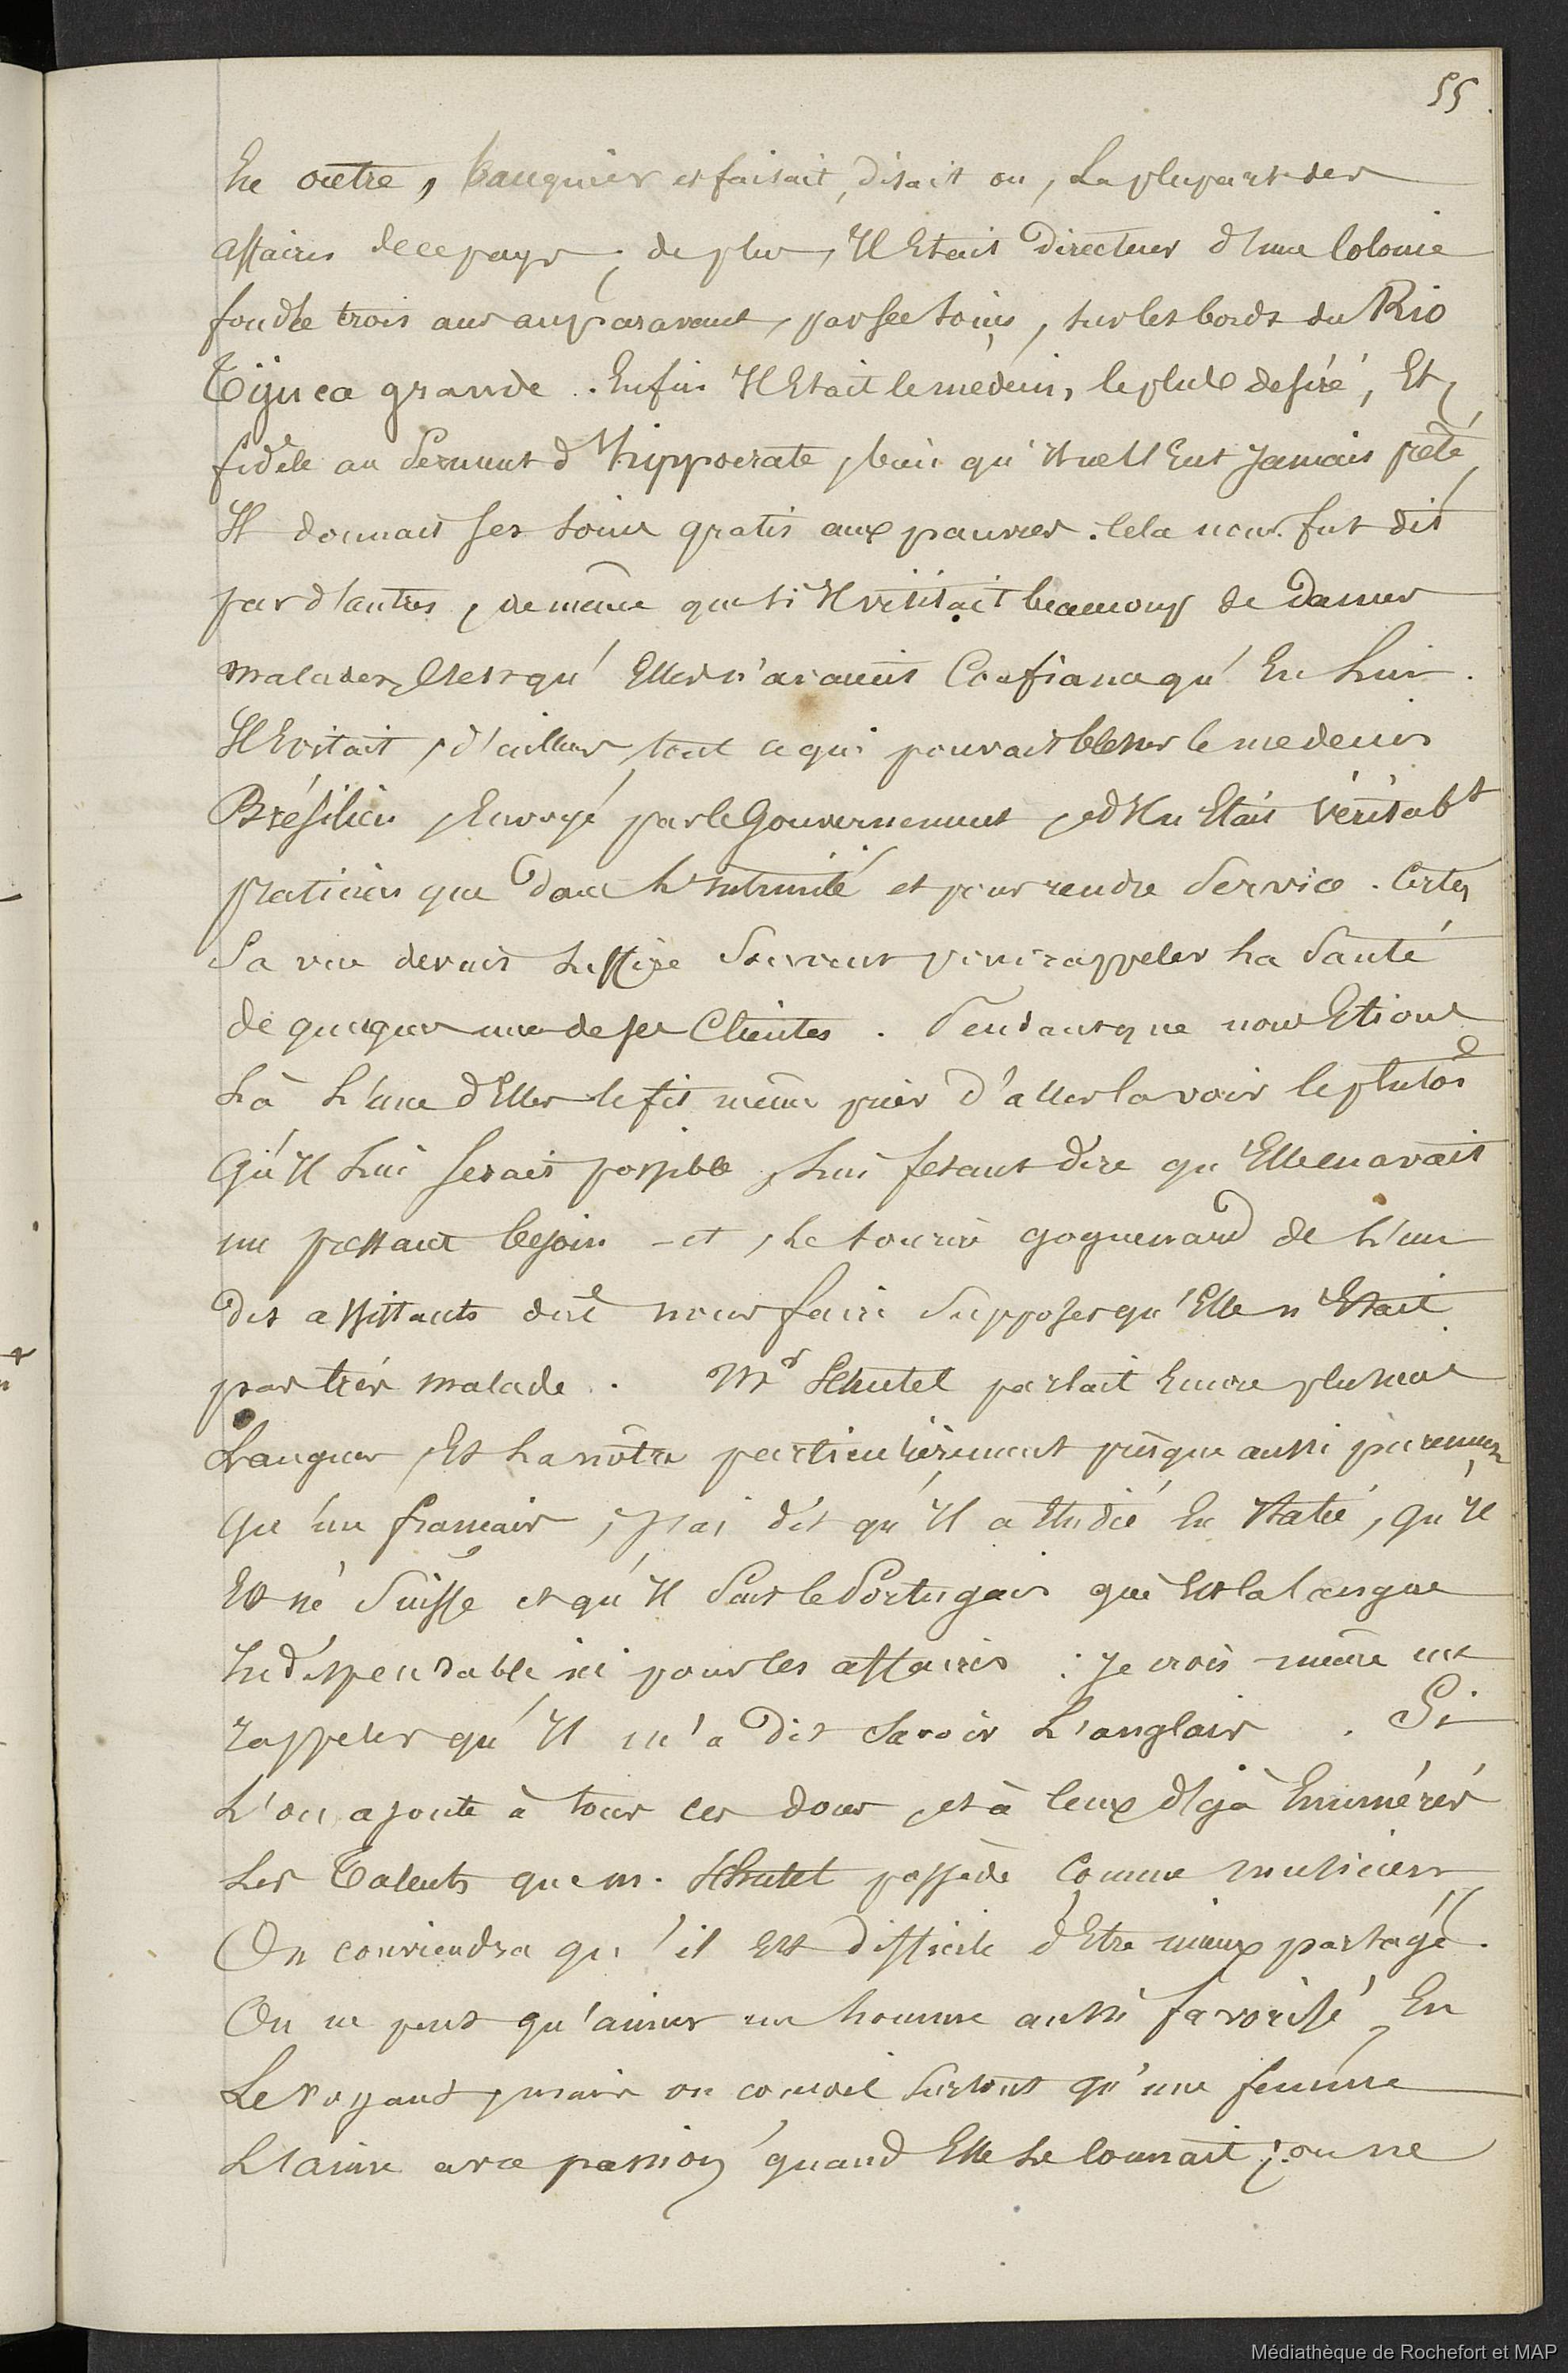 55
En outre, banquier et faisait, disait on, La plupart des
affaires de ce pays ; de plus, Il Etait Directeur d'une Colonie
fondée trois ans auparavant, par ses soins, sur les bords du Rio
Tijuca grande. Enfin Il Etait le médecin, le plus desiré, Et,
fidèle au Serment d'hippocrate, bien qu'Il ne l'Eut Jamais prêté,
Il donnait ses soins gratis aux pauvres. Cela nous fut dit
par d'autres, de même que si Il visitait beaucoup de Dames
malades, c'est qu'Elles n'avaient Confiance qu'En Lui.
Il Evitait, d'ailleurs, tout ce qui pouvait blesser le medecin
Brésilien, Envoyé par le Gouvernement, et Il n'Etait véritabt
praticien que Dans L'Intimité et pour rendre Service. Certes
Sa vue devait suffire Souvent pour rappeler La Santé
de quelques unes de ses Clientes. Pendant que nous Etions
Là L'une d'Elles le fit même prier d'aller la voir le plutôt
Qu'Il Lui serait possible, Lui fesant dire qu'Elle en avait
un pressant besoin - et, Le sourire goguenard de L'un
des assistants dut nous faire Supposer qu'Elle n'Etait
pas très malade. Mr Schutel parlait Encore plusieurs
Langues, Et La nôtre particulièrement presque aussi purement
Qu'un français, J'ai dit qu'Il a Etudié En Italie, Qu'Il
Est né Suisse et qu'Il Sait le Portugais qui Est la Langue
Indispensable ici pour les affaires : Je crois même me
rappeler qu'Il m'a Dit Savoir L'anglais. Si
L'on ajoute à tous ces dons, et à Ceux déjà Enumérés
Les Talents que m. Schutel possède Comme musicien
On conviendra qu'il Est Difficile d'Etre mieux partagé.
On ne peut qu'aimer un homme aussi favorisé, En
Le voyant, mais on concoit surtout qu'une femme
L'aime avec passion quand Elle Le Connait ; on ne
Médiathèque de Rochefort et MAP